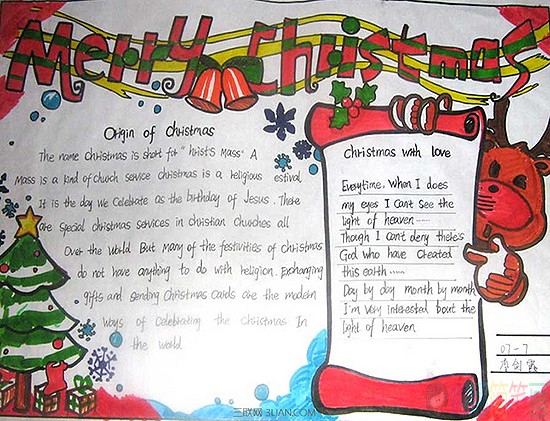 Merry Christmas
Origin of christmas
The name christmas is short for "hrist's Mass" A
Mass is a kind of church service christmas is a religious estival
It is the day we celebrate as the birthday of Jesus. There
are special christmas services in christian Churches all
Over the World But Many of the festivities of christmas
do not have anything to do with religion. Exchanging
gifts and sending christmas cards are the modern
Ways of Celebrating the christmas In
the world
Christmas with love
Everytime, When I does
my eyes I can't See the
light of heaven......
Though I can't deny there's
God who have created
this earth ......
Day by day month by month
I'm very interested bout the
light of heaven
07-7
三联网 3LIAN.COM